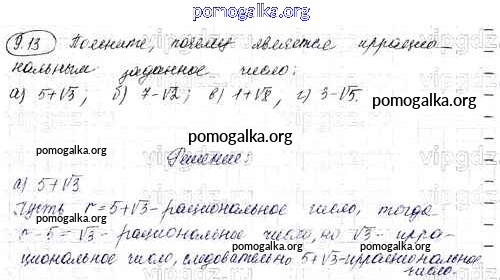 pomogalka.org
9.13 Поясните, почему является иррацио-
нальным заданное число:
а) 5+√3; б) 7-√2; в) 1+√8, г) 3-√5.
pomogalka.org
pomogalka.org
Решение:
pomogalka.org
а) 5+√3
Пусть r=5+√3-рациональное число, тогда
r-5=√3- рациональное число, но √3- ирра-
циональное число, следовательно 5+√3-иррациональное
число.
pomogalka.org
pomogalka.org